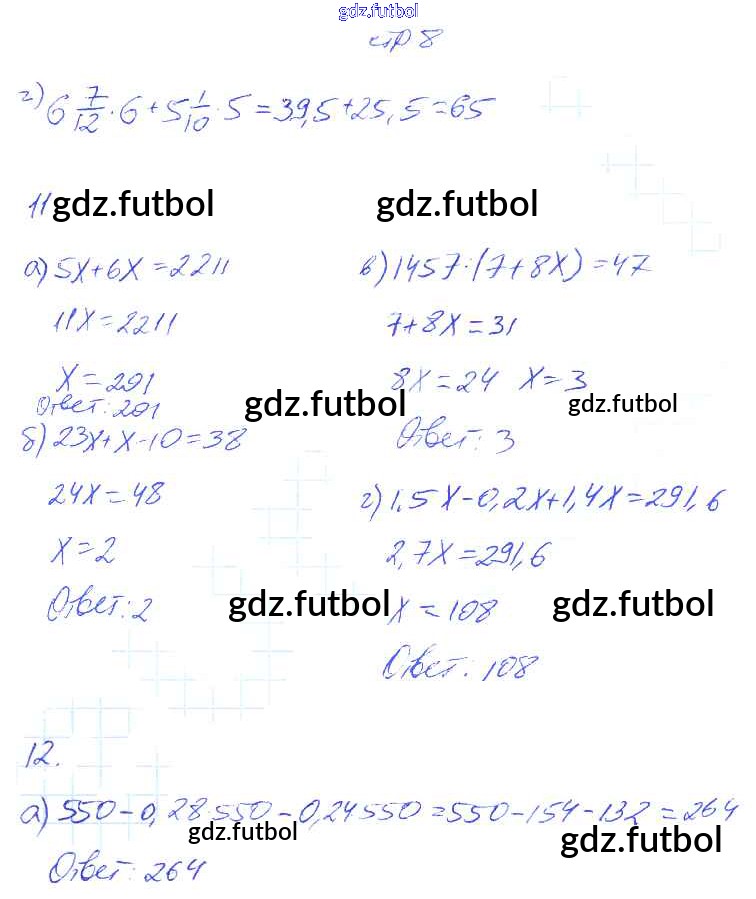 gdz.futbol
стр 8
г) 6 7/12 · 6 + 5 1/10 · 5 = 39,5 + 25,5 = 65
11 gdz.futbol gdz.futbol
а) 5x + 6x = 2211
11x = 2211
x = 201
Ответ: 201
б) 23x + x - 10 = 38
24x = 48
x = 2
Ответ: 2
в) 1457 : (7 + 8x) = 47
7 + 8x = 31
8x = 24 x = 3
gdz.futbol gdz.futbol
Ответ: 3
г) 1,5x - 0,2x + 1,4x = 291,6
2,7x = 291,6
gdz.futbol x = 108 gdz.futbol
Ответ: 108
12.
а) 550 - 0,28·550 - 0,24·550 = 550 - 154 - 132 = 264
gdz.futbol gdz.futbol
Ответ: 264